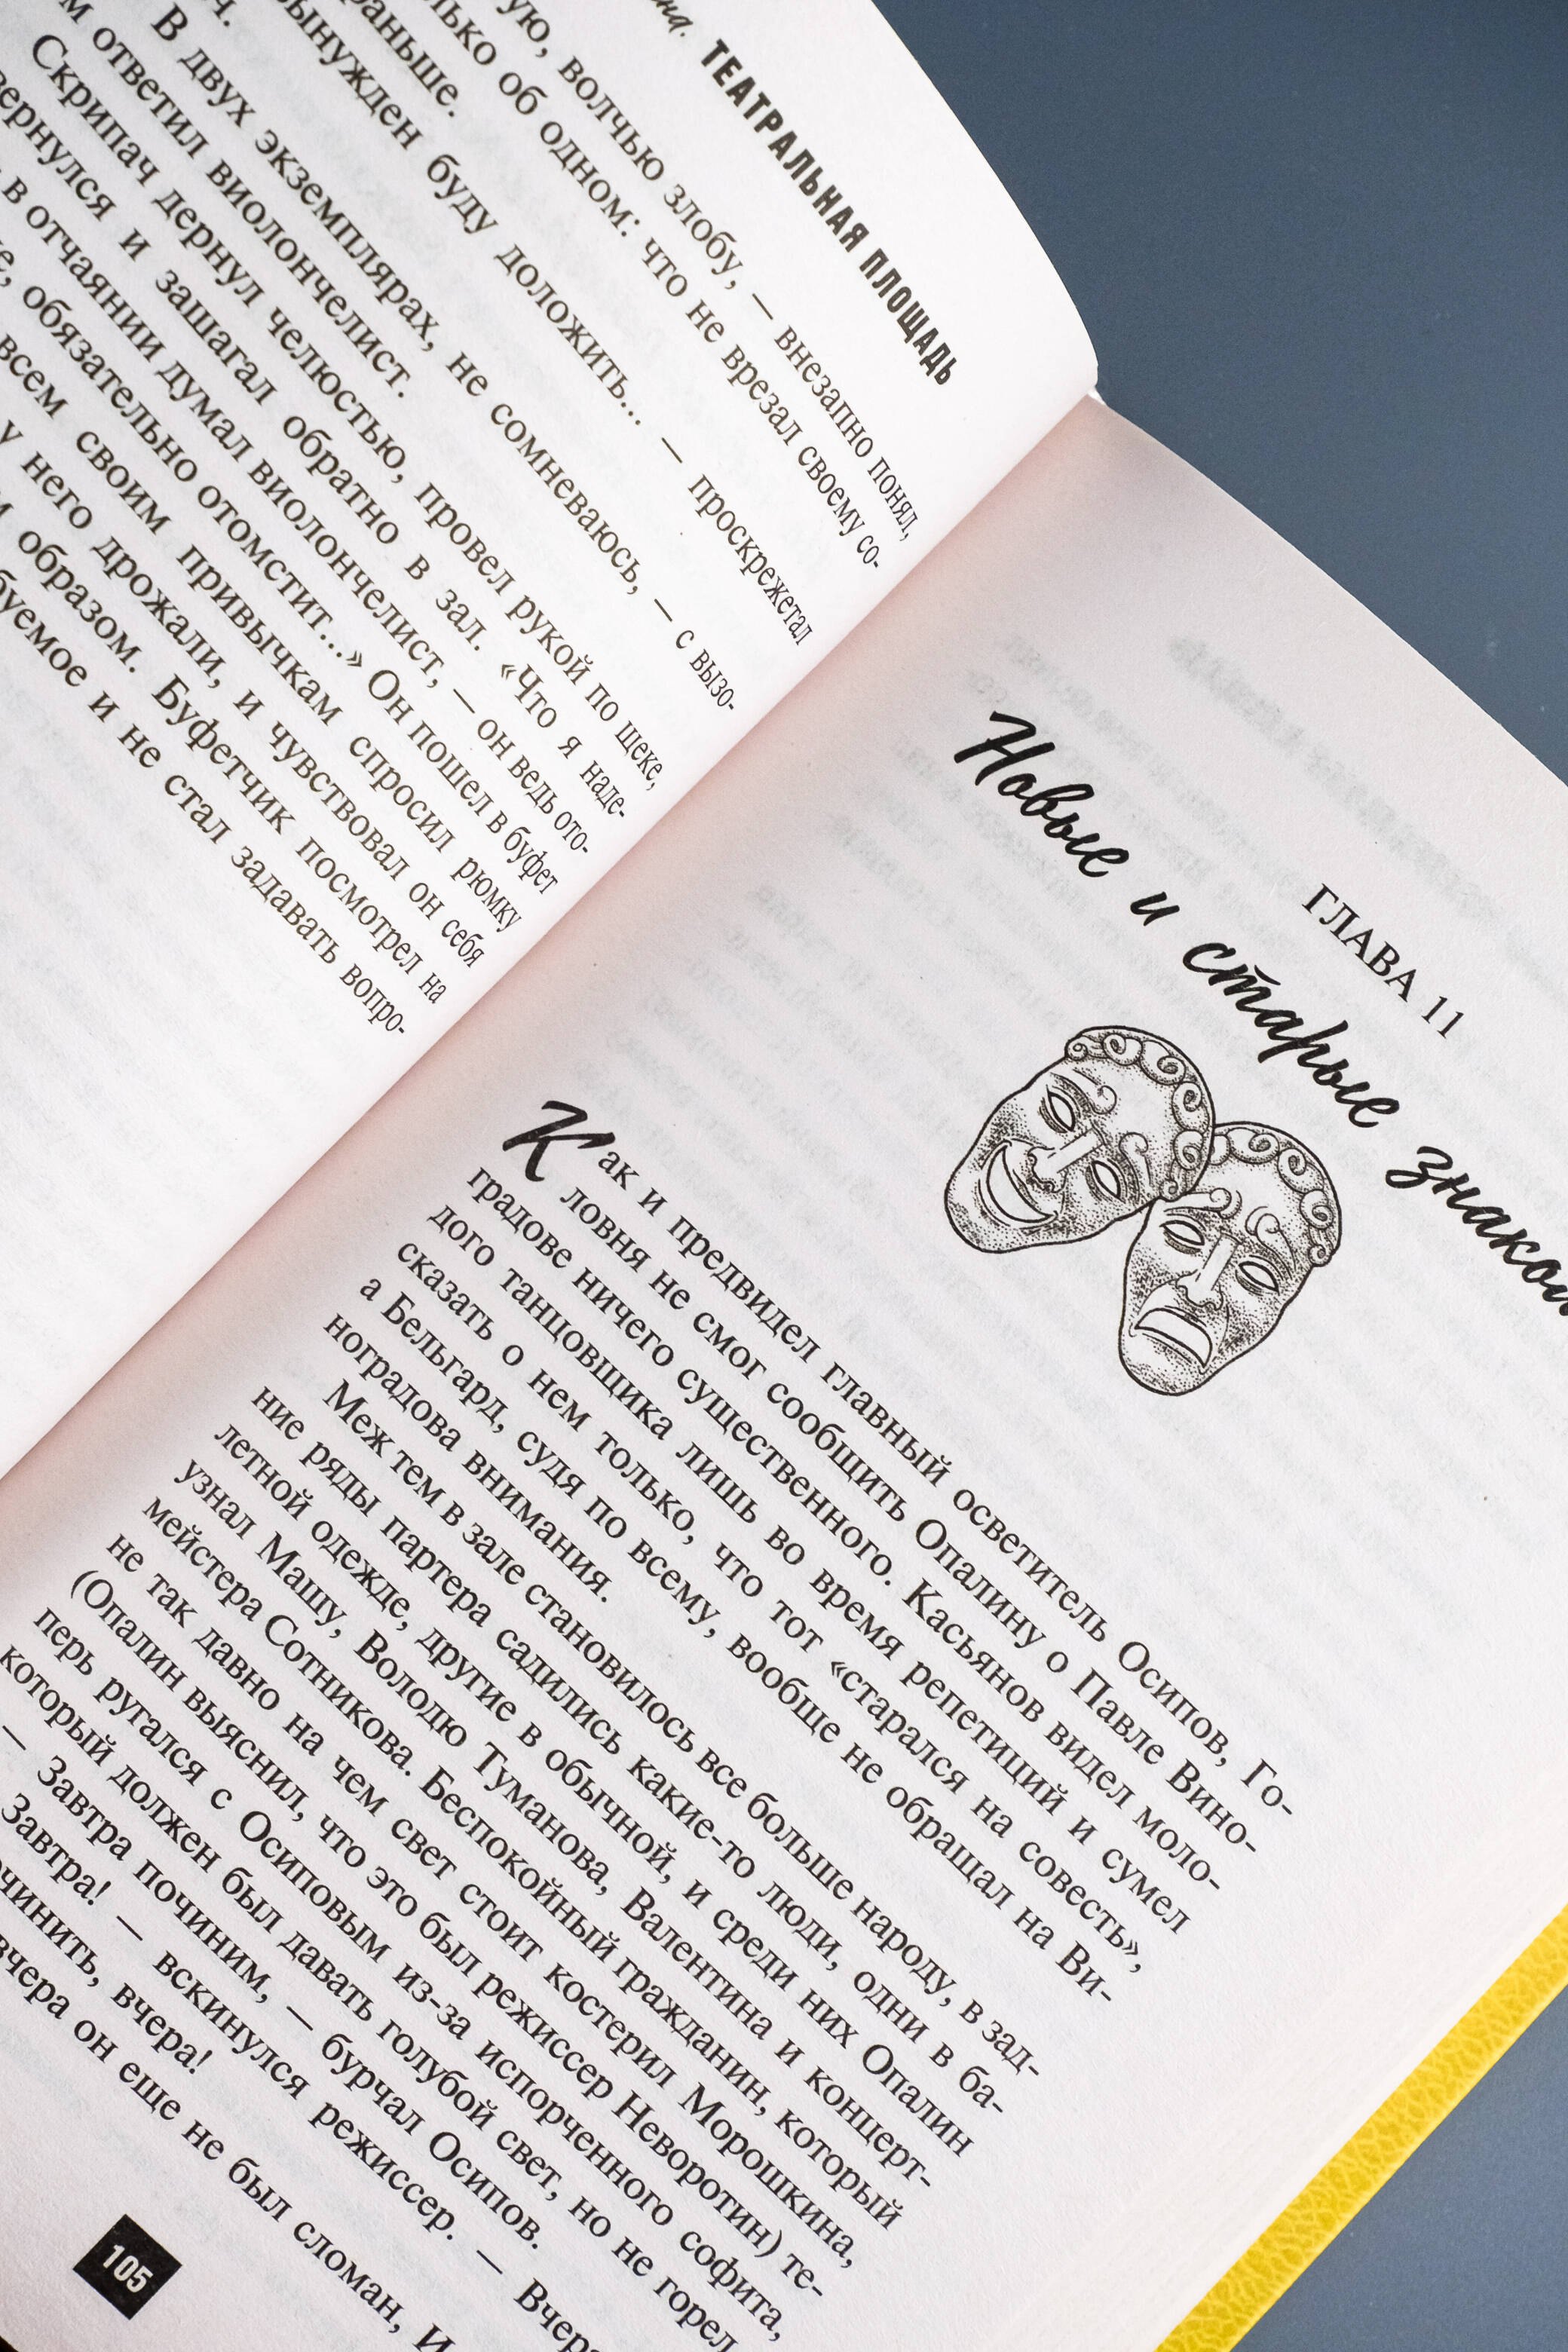 ТЕАТРАЛЬНАЯ ПЛОЩАДЬ
волчью злобу, — внезапно понял,
об одном: что не врезал своему со-
раньше.
вынужден буду доложить... — проскрежетал
В двух экземплярах, не сомневаюсь, — с вызо-
ответил виолончелист.
Скрипач дернул челюстью, провел рукой по щеке,
и зашагал обратно в зал. «Что я наде-
в отчаянии думал виолончелист, — он ведь ото-
обязательно отомстит...» Он пошел в буфет
всем своим привычкам спросил рюмку
у него дрожали, и чувствовал он себя
образом. Буфетчик посмотрел на
и не стал задавать вопро-
ГЛАВА 11
Новые и старые
Как и предвидел главный осветитель Осипов, Го-
ловня не смог сообщить Опалину о Павле Вино-
градове ничего существенного. Касьянов видел моло-
дого танцовщика лишь во время репетиций и сумел
сказать о нем только, что тот «старался на совесть»,
а Бельгард, судя по всему, вообще не обращал на Ви-
ноградова внимания.
Меж тем в зале становилось все больше народу, в зад-
ние ряды партера садились какие-то люди, одни в ба-
летной одежде, другие в обычной, и среди них Опалин
узнал Машу, Володю Туманова, Валентина и концерт-
мейстера Сотникова. Беспокойный гражданин, который
не так давно на чем свет стоит костерил Морошкина,
(Опалин выяснил, что это был режиссер Неворотин) те-
перь ругался с Осиповым из-за испорченного софита,
который должен был давать голубой свет, но не горел
— Завтра починим, — бурчал Осипов.
Завтра! — вскинулся режиссер. — Вчера
вчера!
вчера он еще не был сломан, И
105